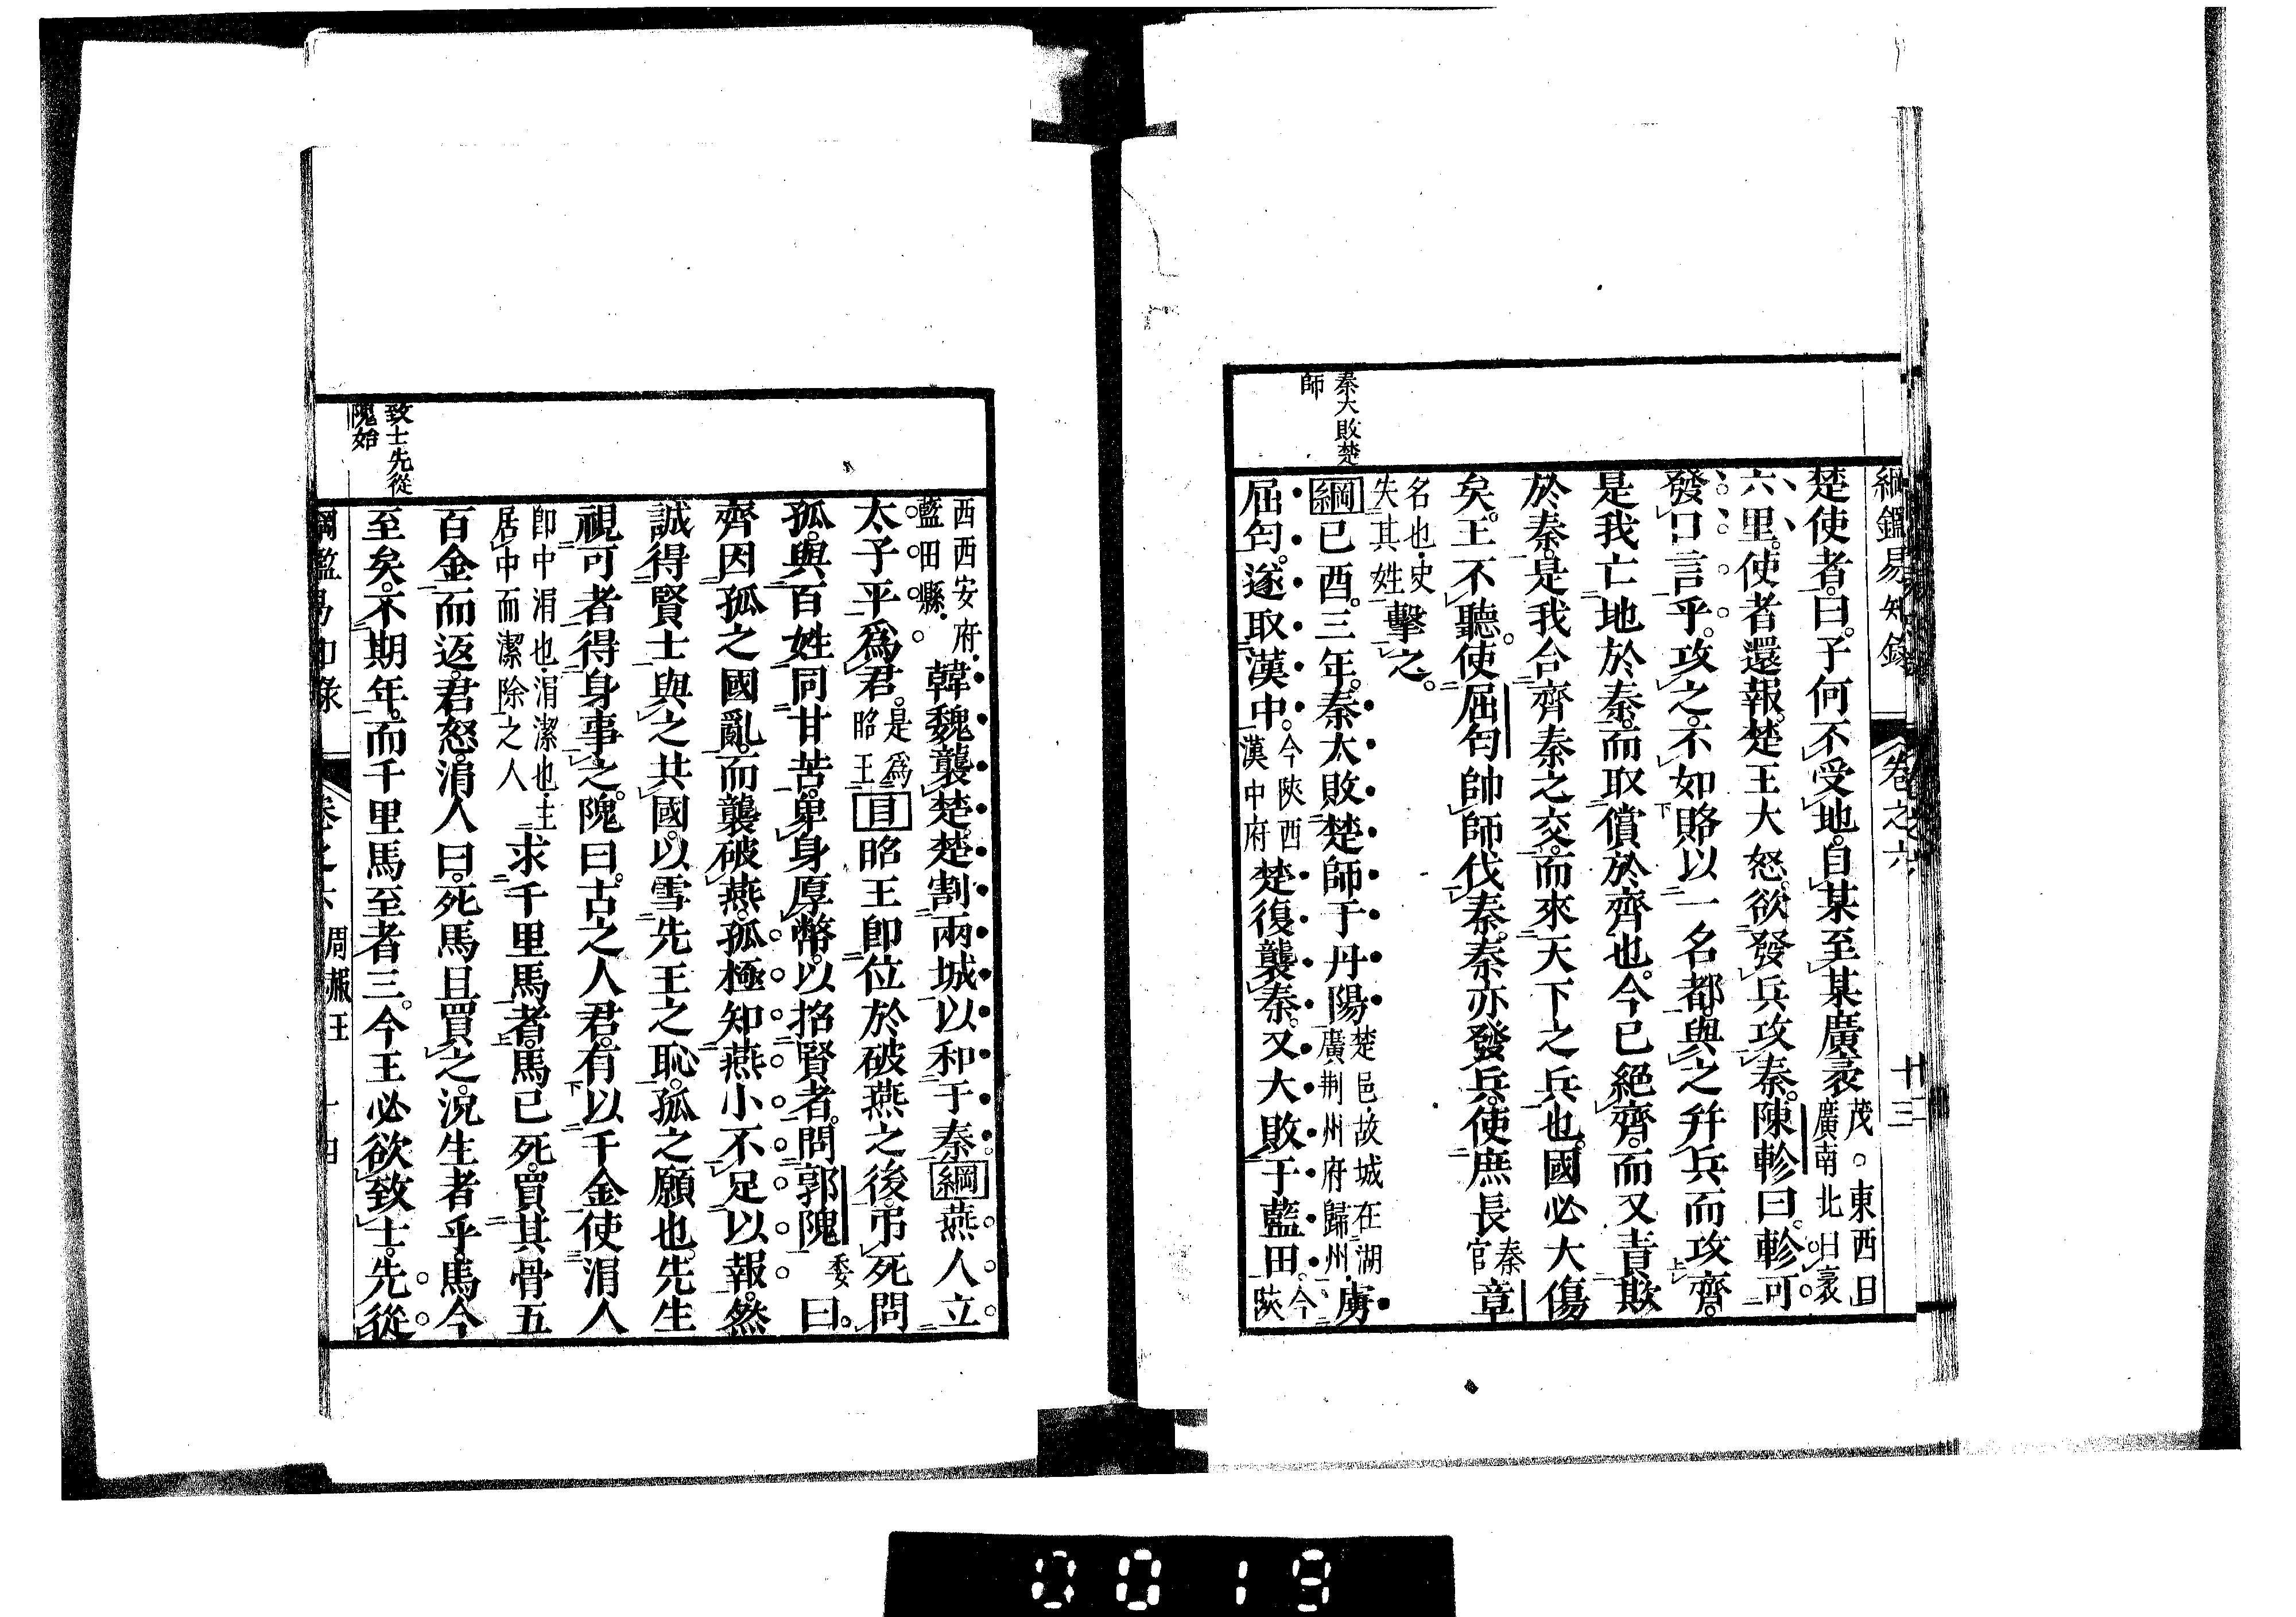 綱鑑易知錄 卷之六 廿三
楚使者曰子何不受地自某至某廣袤茂○東西曰廣南北曰袤
六里使者還報楚王大怒欲發兵攻秦陳軫曰軫可
發口言乎攻之不如賂以一名都與之幷兵而攻齊
是我亡地於秦而取償於齊也今已絕齊而又責欺
於秦是我合齊秦之交而來天下之兵也國必大傷
矣王不聽使屈匄帥師伐秦秦亦發兵使庶長秦官章
名也史失其姓擊之
秦大敗楚師
綱己酉三年秦大敗楚師于丹陽楚邑故城在湖廣荆州府歸州虜
屈匄遂取漢中今陝西漢中府楚復襲秦又大敗于藍田今陝
西西安府藍田縣韓魏襲楚楚割兩城以和于秦綱燕人立
太子平爲君是爲昭王目昭王卽位於破燕之後弔死問
孤與百姓同甘苦卑身厚幣以招賢者問郭隗委曰
齊因孤之國亂而襲破燕孤極知燕小不足以報然
誠得賢士與之共國以雪先王之恥孤之願也先生
視可者得身事之隗曰古之人君有以千金使涓人
卽中涓也涓潔也主居中而潔除之人求千里馬者馬已死買其骨五
百金而返君怒涓人曰死馬且買之況生者乎馬今
致士先從隗始
至矣不期年而千里馬至者三今王必欲致士先從
綱鑑易知錄 卷之六 周赧王 十四
0019